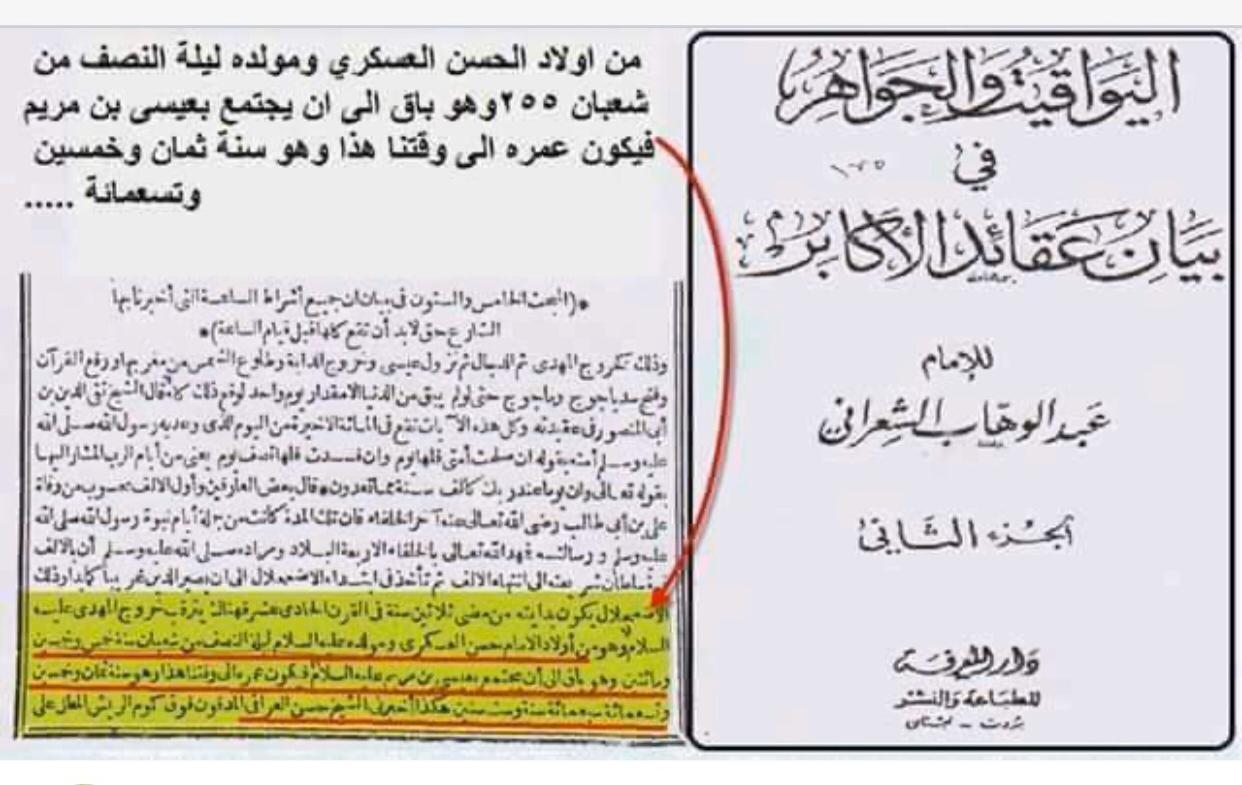 من اولاد الحسن العسكري ومولده ليلة النصف من
شعبان ٢٥٥وهو باق الى ان يجتمع بعيسى بن مريم
فيكون عمره الى وقتنا هذا وهو سنة ثمان وخمسين
وتسعمائة .....
*(المبحث الخامس والستون في بيان ان جميع أشراط الساعة التي أخبرنا بها
الشارع حق لابد أن تقع كلها قبل قيام الساعة)*
وذلك كخروج المهدى ثم الدجال ثم نزول عيسى وخروج الدابة وطلوع الشمس من مغربها ورفع القرآن
وفتح سد ياجوج وماجوج حتى لو لم يبق من الدنيا الامقدار يوم واحد لوقع ذلك كله قال الشيخ تقى الدين بن
أبى المنصور فى عقيدته وكل هذه الآيات تقع فى المائة الاخيرة من اليوم الذى وعد به رسول الله صلى الله
عليه وسلم أمته بقوله ان صلحت أمتى فلها يوم وان فسدت فلها نصف يوم يعنى من أيام الرب المشار اليها
بقوله تعالى وان يوما عند ربك كألف سنة مما تعدون * قال بعض العارفين وأول الالف محسوب من وفاة
على بن أبى طالب رضى الله تعالى عنه آخر الخلفاء فان تلك المدة كانت من جملة أيام نبوة رسول الله صلى الله
عليه وسلم ورسالته فمهد الله تعالى بالخلفاء الاربعة البلاد ومراده صلى الله عليه وسلم أن بالالف
قوة سلطان شريعته الى انتهاء الالف ثم تأخذ فى ابتداء الاضمحلال الى ان يصير الدين غريبا كما بدا وذلك
الاضمحلال يكون بدايته من مضى ثلاثين سنة فى القرن الحادى عشر فهناك يترقب خروج المهدى عليه
السلام وهو من أولاد الامام حسن العسكرى ومولده عليه السلام ليلة النصف من شعبان سنة خمس وخمسين
ومائتين وهو باق الى أن يجتمع بعيسى بن مريم عليه السلام فيكون عمره الى وقتنا هذا وهو سنة ثمان وخمسين
وتسعمائة سبعمائة سنة وست سنين هكذا أخبرنى الشيخ حسن العراقى المدفون فوق كوم الريش المطل على
اليواقيت والجواهر
في
بيان عقائد الأكابر
للإمام
عبد الوهاب الشعراني
الجزء الثاني
دار المعرفة
للطباعة والنشر
بيروت - لبنان